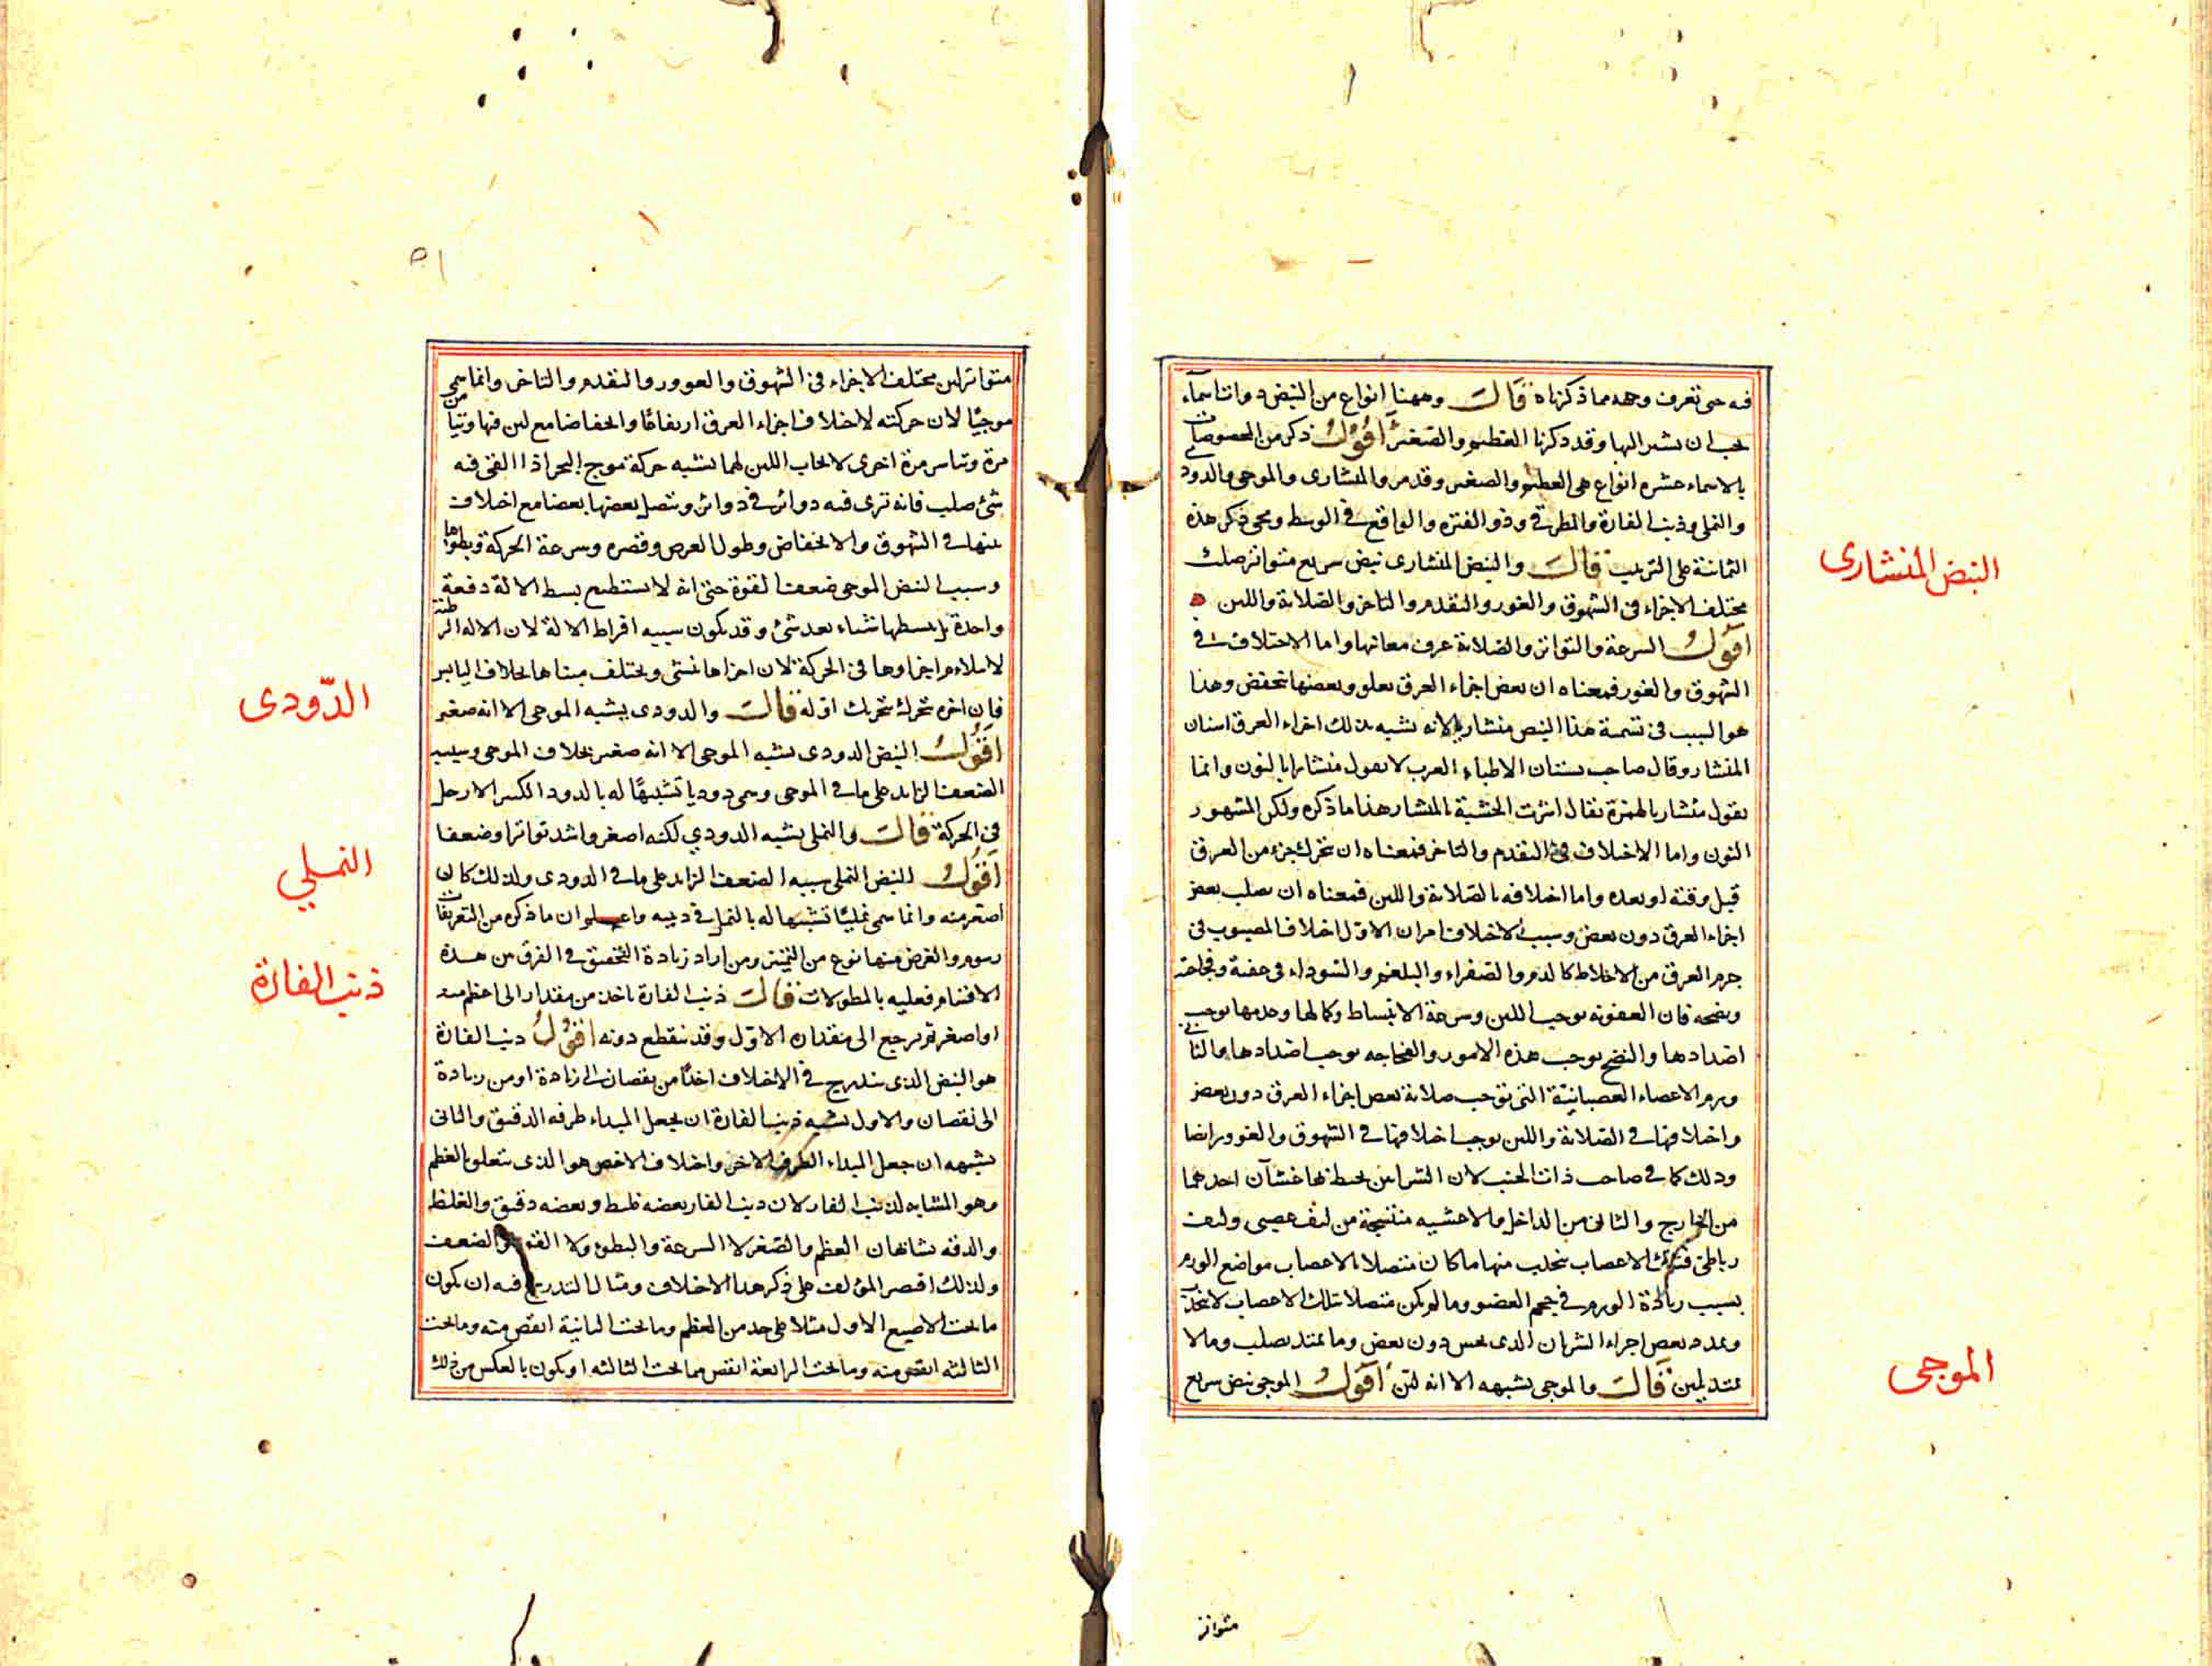 فيه حتى تعرف وحده مما ذكرناه قال وههنا انواع من النبض ذوات اسماء
يجب ان نشير اليها وقد ذكرنا العظيم والصغير اقول ذكر من المخصوصات
بالاسماء عشرة انواع هى العظيم والصغير وقد مر والمنشارى والموجى والدودى
والنملى وذنب الفارة والمطرقى وذو الفترة والواقع فى الوسط ويجئ ذكر هذه
الثمانية على الترتيب قال والنبض المنشارى نبض سريع متواتر صلب
مختلف الاجزاء فى الشهوق والغور والتقدم والتاخر والصلابة واللين
اقول السرعة والتواتر والصلابة عرف معانيها واما الاختلاف فى
الشهوق والغور فمعناه ان بعض اجزاء العرق يعلو وبعضها ينخفض وهذا
هو السبب فى تسمية هذا النبض منشاريا لانه يشبه بذلك اجزاء العرق اسنان
المنشار وقال صاحب بستان الاطباء العرب لا يقول منشارا بالنون وانما
يقول مئشار بالهمزة يقال اشرت الخشبة بالمئشار هذا ما ذكره ولكن المشهور
النون واما الاختلاف فى التقدم والتاخر فمعناه ان يتحرك جزء من العرق
قبل وقته او بعده واما اختلافه بالصلابة واللين فمعناه ان يصلب بعض
اجزاء العرق دون بعض وسبب الاختلاف امران الاول اختلاف المصبوب فى
جرم العرق من الاخلاط كالدم والصفراء والبلغم والسوداء فى عفنه وفجاجته
ونضجه فان العفونة توجب اللين وسرعة الانبساط وكمالها وعدمها يوجب
اضدادها والنضج يوجب هذه الامور والفجاجه توجب اضدادها والثانى
ورم الاعضاء العصبانية التى توجب صلابة بعض اجزاء العرق دون بعض
واختلافها فى الصلابة واللين يوجب اختلافها فى الشهوق والغوور ايضا
وذلك كما فى صاحب ذات الجنب لان الشرايين يحيط بها غشآن احدهما
من الخارج والثانى من الداخل والاغشيه منتسجة من ليف عصبى وليف
رباطى الاعصاب ينجذب منها ما كان متصلا بالاعصاب مواضع الورم
بسبب زيادة الورم فى حجم العضو وما لم يكن متصلا بتلك الاعصاب لا ينجذب
ويمدد بعض اجزاء الشريان الذى يحس دون بعض وما يمتد يصلب وما لا
يمتد يلين قال والموجى يشبهه الا انه لين اقول الموجى نبض سريع
متواتر
النبض المنشارى
الموجى
متواتر لين مختلف الاجزاء فى الشهوق والغوور والتقدم والتاخر وانما سمى
موجيًا لان حركته لاختلاف اجزاء العرق ارتفاعًا وانخفاضا مع لين فيها
مرة وتياسر مرة اخرى لايجاب اللين لهما يشبه حركة موج البحر اذا القى فيه
شئ صلب فانه ترى فيه دوائر فى دوائر ويتصل بعضها ببعض مع اختلاف
بينها فى الشهوق والانخفاض وطول العرض وقصره وسرعة الحركة وبطوها
وسبب النبض الموجى ضعف القوة حتى انه لا يستطيع بسط الالة دفعة
واحدة بل يبسطها شيئا بعد شئ وقد يكون سببه افراط الالة لان الالة الرطبة
لا يتلاءم اجزاوها فى الحركة لان اجزاها تنثنى ويختلف بخلاف اليابس
فان اخره يتحرك بتحرك اوله قال والدودى يشبه الموجى الا انه صغير
اقول النبض الدودى يشبه الموجى الا انه صغير بخلاف الموجى وسببه
الضعف الزايد على ما فى الموجى وسمى دوديا تشبيهًا له بالدود الكثير الارجل
فى الحركة قال والنملى يشبه الدودي لكنه اصغر واشد تواترا وضعفا
اقول النبض النملى سببه الضعف الزايد على ما فى الدودى ولذلك كان
اصغر منه وانما سمى نمليًا تشبيها له بالنمل فى دبيبه واعلم ان ما ذكره من التعريفات
رسوم والغرض منها نوع من التمييز ومن اراد زيادة التحقيق فى الفرق من هذه
الاقسام فعليه بالمطولات قال ذنب الفارة ياخذ من مقدار الى اعظم منه
او اصغر ثم يرجع الى مقداره الاول وقد ينقطع دونه اقول ذنب الفارة
هو النبض الذى يتدرج فى الاختلاف اخذًا من نقصان الى زيادة او من زيادة
الى نقصان والاول يشبه ذنب الفارة ان يجعل المبداء طرفه الدقيق والثانى
يشبهه ان جعل المبداء الطرف الاخر واختلاف الاخص هو الذى يتعلق بالعظم
وهو المشابه لذنب الفار لان ذنب الفار بعضه غليظ وبعضه دقيق والغلظ
والدقه يشابهان العظم والصغر لا السرعة والبطوء ولا القوة والضعف
ولذلك اقتصر المؤلف على ذكر هذا الاختلاف ومثال التدريج فيه ان يكون
ما تحت الاصبع الاول مثلا على حد من العظم وما تحت الثانية انقص منه وما تحت
الثالثه انقص منه وما تحت الرابعة انقص مما تحت الثالثه او يكون بالعكس من ذلك
الدّودى
النمـلي
ذنب الفارة
٥١